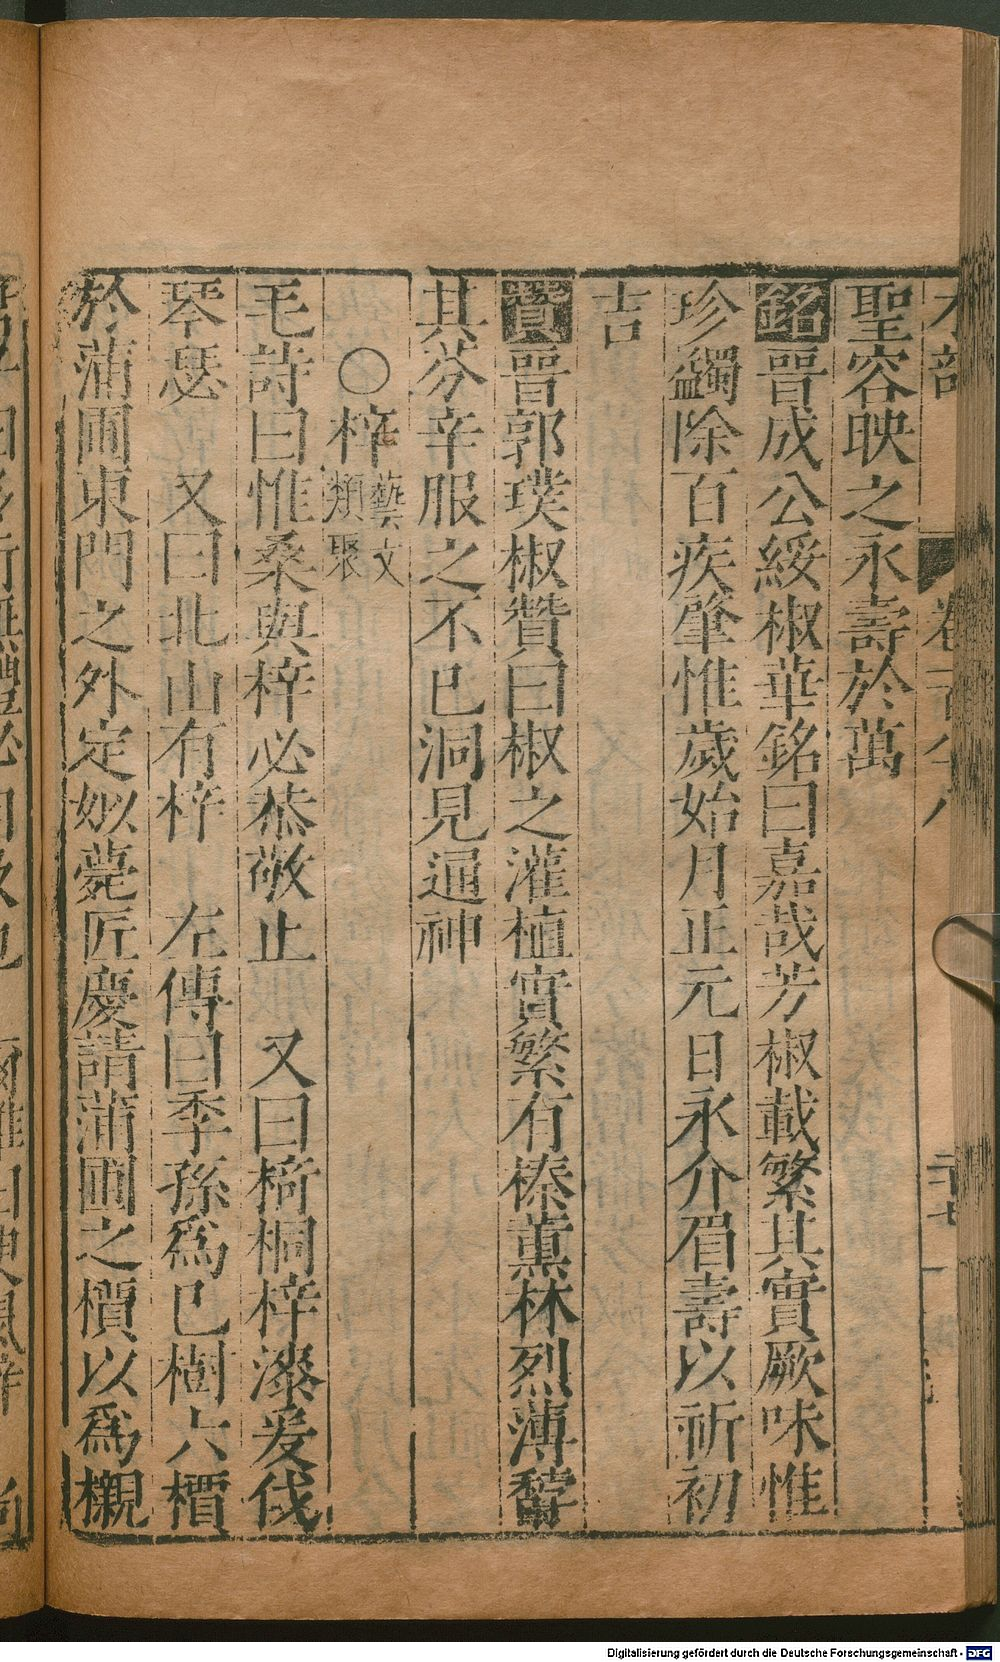 木部 卷 二十七
聖容映之永壽於萬
銘晉成公綏椒華銘曰嘉哉芳椒載繁其實厥味惟
珍蠲除百疾肇惟歲始月正元日永介眉壽以祈初
吉
贊晉郭璞椒贊曰椒之灌植實繁有榛薰林烈薄馞
其芬辛服之不已洞見通神
○梓藝文類聚
毛詩曰惟桑與梓必恭敬止 又曰椅桐梓漆爰伐
琴瑟 又曰北山有梓 左傳曰季孫爲已樹六檟
於蒲圃東門之外定姒薨匠慶請蒲圃之檟以爲櫬
Digitalisierung gefördert durch die Deutsche Forschungsgemeinschaft - DFG